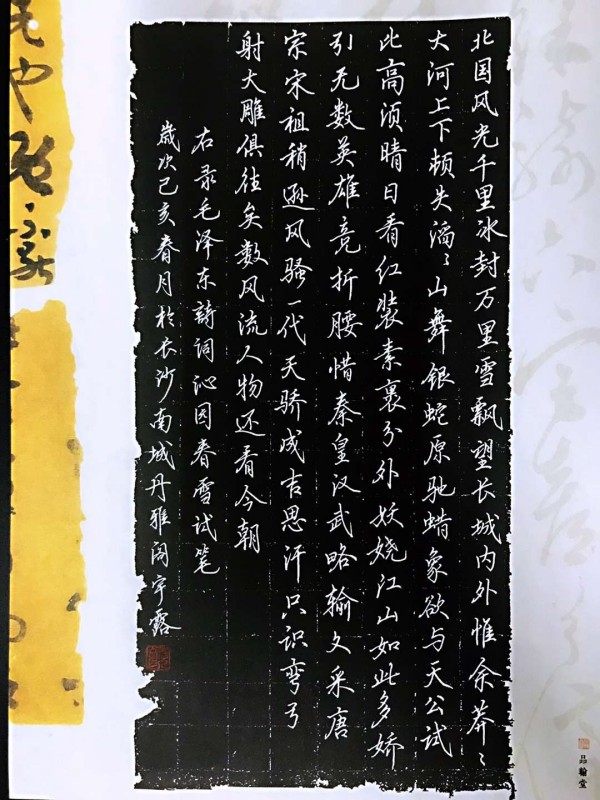 北国风光千里冰封万里雪飘望长城内外惟余莽〻
大河上下顿失滔〻山舞银蛇原驰蜡象欲与天公试
比高须晴日看红装素裹分外妖娆江山如此多娇
引无数英雄竞折腰惜秦皇汉武略输文采唐
宗宋祖稍逊风骚一代天骄成吉思汗只识弯弓
射大雕俱往矣数风流人物还看今朝
右录毛泽东詩词沁园春雪试笔
歲次己亥春月於长沙南城丹雅阁宇露
昂翰堂